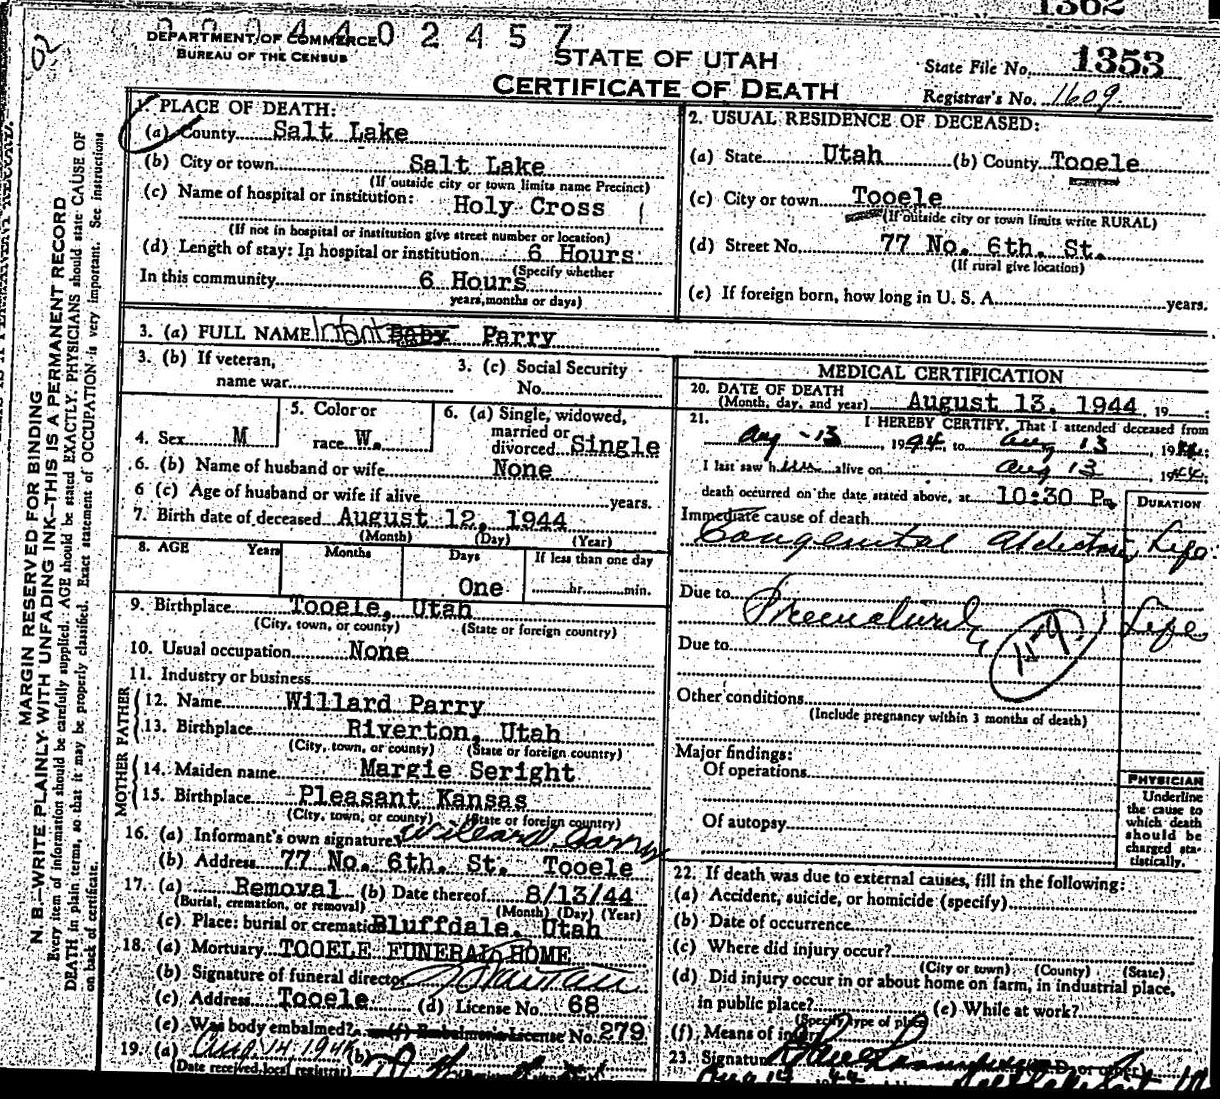 1362
2 2 2 4 4 0 2 4 5 7
DEPARTMENT OF COMMERCE
BUREAU OF THE CENSUS
STATE OF UTAH
CERTIFICATE OF DEATH
State File No. 1353
Registrar's No. 1609
MARGIN RESERVED FOR BINDING
N. B.—WRITE PLAINLY WITH UNFADING INK—THIS IS A PERMANENT RECORD
Every item of information should be carefully supplied. AGE should be stated EXACTLY. PHYSICIANS should state CAUSE OF
DEATH in plain terms, so that it may be properly classified. Exact statement of OCCUPATION is very important. See instructions
on back of certificate.
1. PLACE OF DEATH:
(a) County Salt Lake
(b) City or town Salt Lake
(If outside city or town limits name Precinct)
(c) Name of hospital or institution:
Holy Cross
(If not in hospital or institution give street number or location)
(d) Length of stay: In hospital or institution 6 Hours
(Specify whether
In this community 6 Hours
years, months or days)
2. USUAL RESIDENCE OF DECEASED:
(a) State Utah (b) County Tooele
(c) City or town Tooele
(If outside city or town limits write RURAL)
(d) Street No. 77 No. 6th. St.
(If rural give location)
(e) If foreign born, how long in U. S. A. years.
3. (a) FULL NAME Infant Baby Parry
3. (b) If veteran,
name war
3. (c) Social Security
No.
4. Sex M
5. Color or
race W.
6. (a) Single, widowed,
married or
divorced Single
6. (b) Name of husband or wife None
6 (c) Age of husband or wife if alive years.
7. Birth date of deceased August 12, 1944
(Month) (Day) (Year)
8. AGE Years Months Days If less than one day
One hr. min.
9. Birthplace Tooele, Utah
(City, town, or county) (State or foreign country)
10. Usual occupation None
11. Industry or business
FATHER
12. Name Willard Parry
13. Birthplace Riverton, Utah
(City, town, or county) (State or foreign country)
MOTHER
14. Maiden name Margie Seright
15. Birthplace Pleasant Kansas
(City, town, or county) (State or foreign country)
16. (a) Informant's own signature Willard Parry
(b) Address 77 No. 6th. St. Tooele
17. (a) Removal (b) Date thereof 8/13/44
(Burial, cremation, or removal) (Month) (Day) (Year)
(c) Place: burial or cremation Bluffdale, Utah
18. (a) Mortuary TOOELE FUNERAL HOME
(b) Signature of funeral director
(c) Address Tooele (d) License No. 68
(e) Was body embalmed? (f) Embalmers License No. 279
19. (a) Aug. 14, 1944 (b)
(Date received local registrar)
MEDICAL CERTIFICATION
20. DATE OF DEATH
(Month, day, and year) August 13, 1944, 19
21. I HEREBY CERTIFY, That I attended deceased from
Aug - 13, 1944, to Aug 13, 1944;
I last saw him alive on Aug 13, 1944;
death occurred on the date stated above, at 10:30 P.
DURATION
Immediate cause of death
Congenital Life
Due to Prematurity Life
159
Due to
Other conditions
(Include pregnancy within 3 months of death)
Major findings:
Of operations
Of autopsy
PHYSICIAN
Underline
the cause to
which death
should be
charged sta-
tistically.
22. If death was due to external causes, fill in the following:
(a) Accident, suicide, or homicide (specify)
(b) Date of occurrence
(c) Where did injury occur?
(City or town) (County) (State)
(d) Did injury occur in or about home on farm, in industrial place,
in public place? (e) While at work?
(Specify type of place)
(f) Means of
23. Signature (M.D. or other)
Aug 14